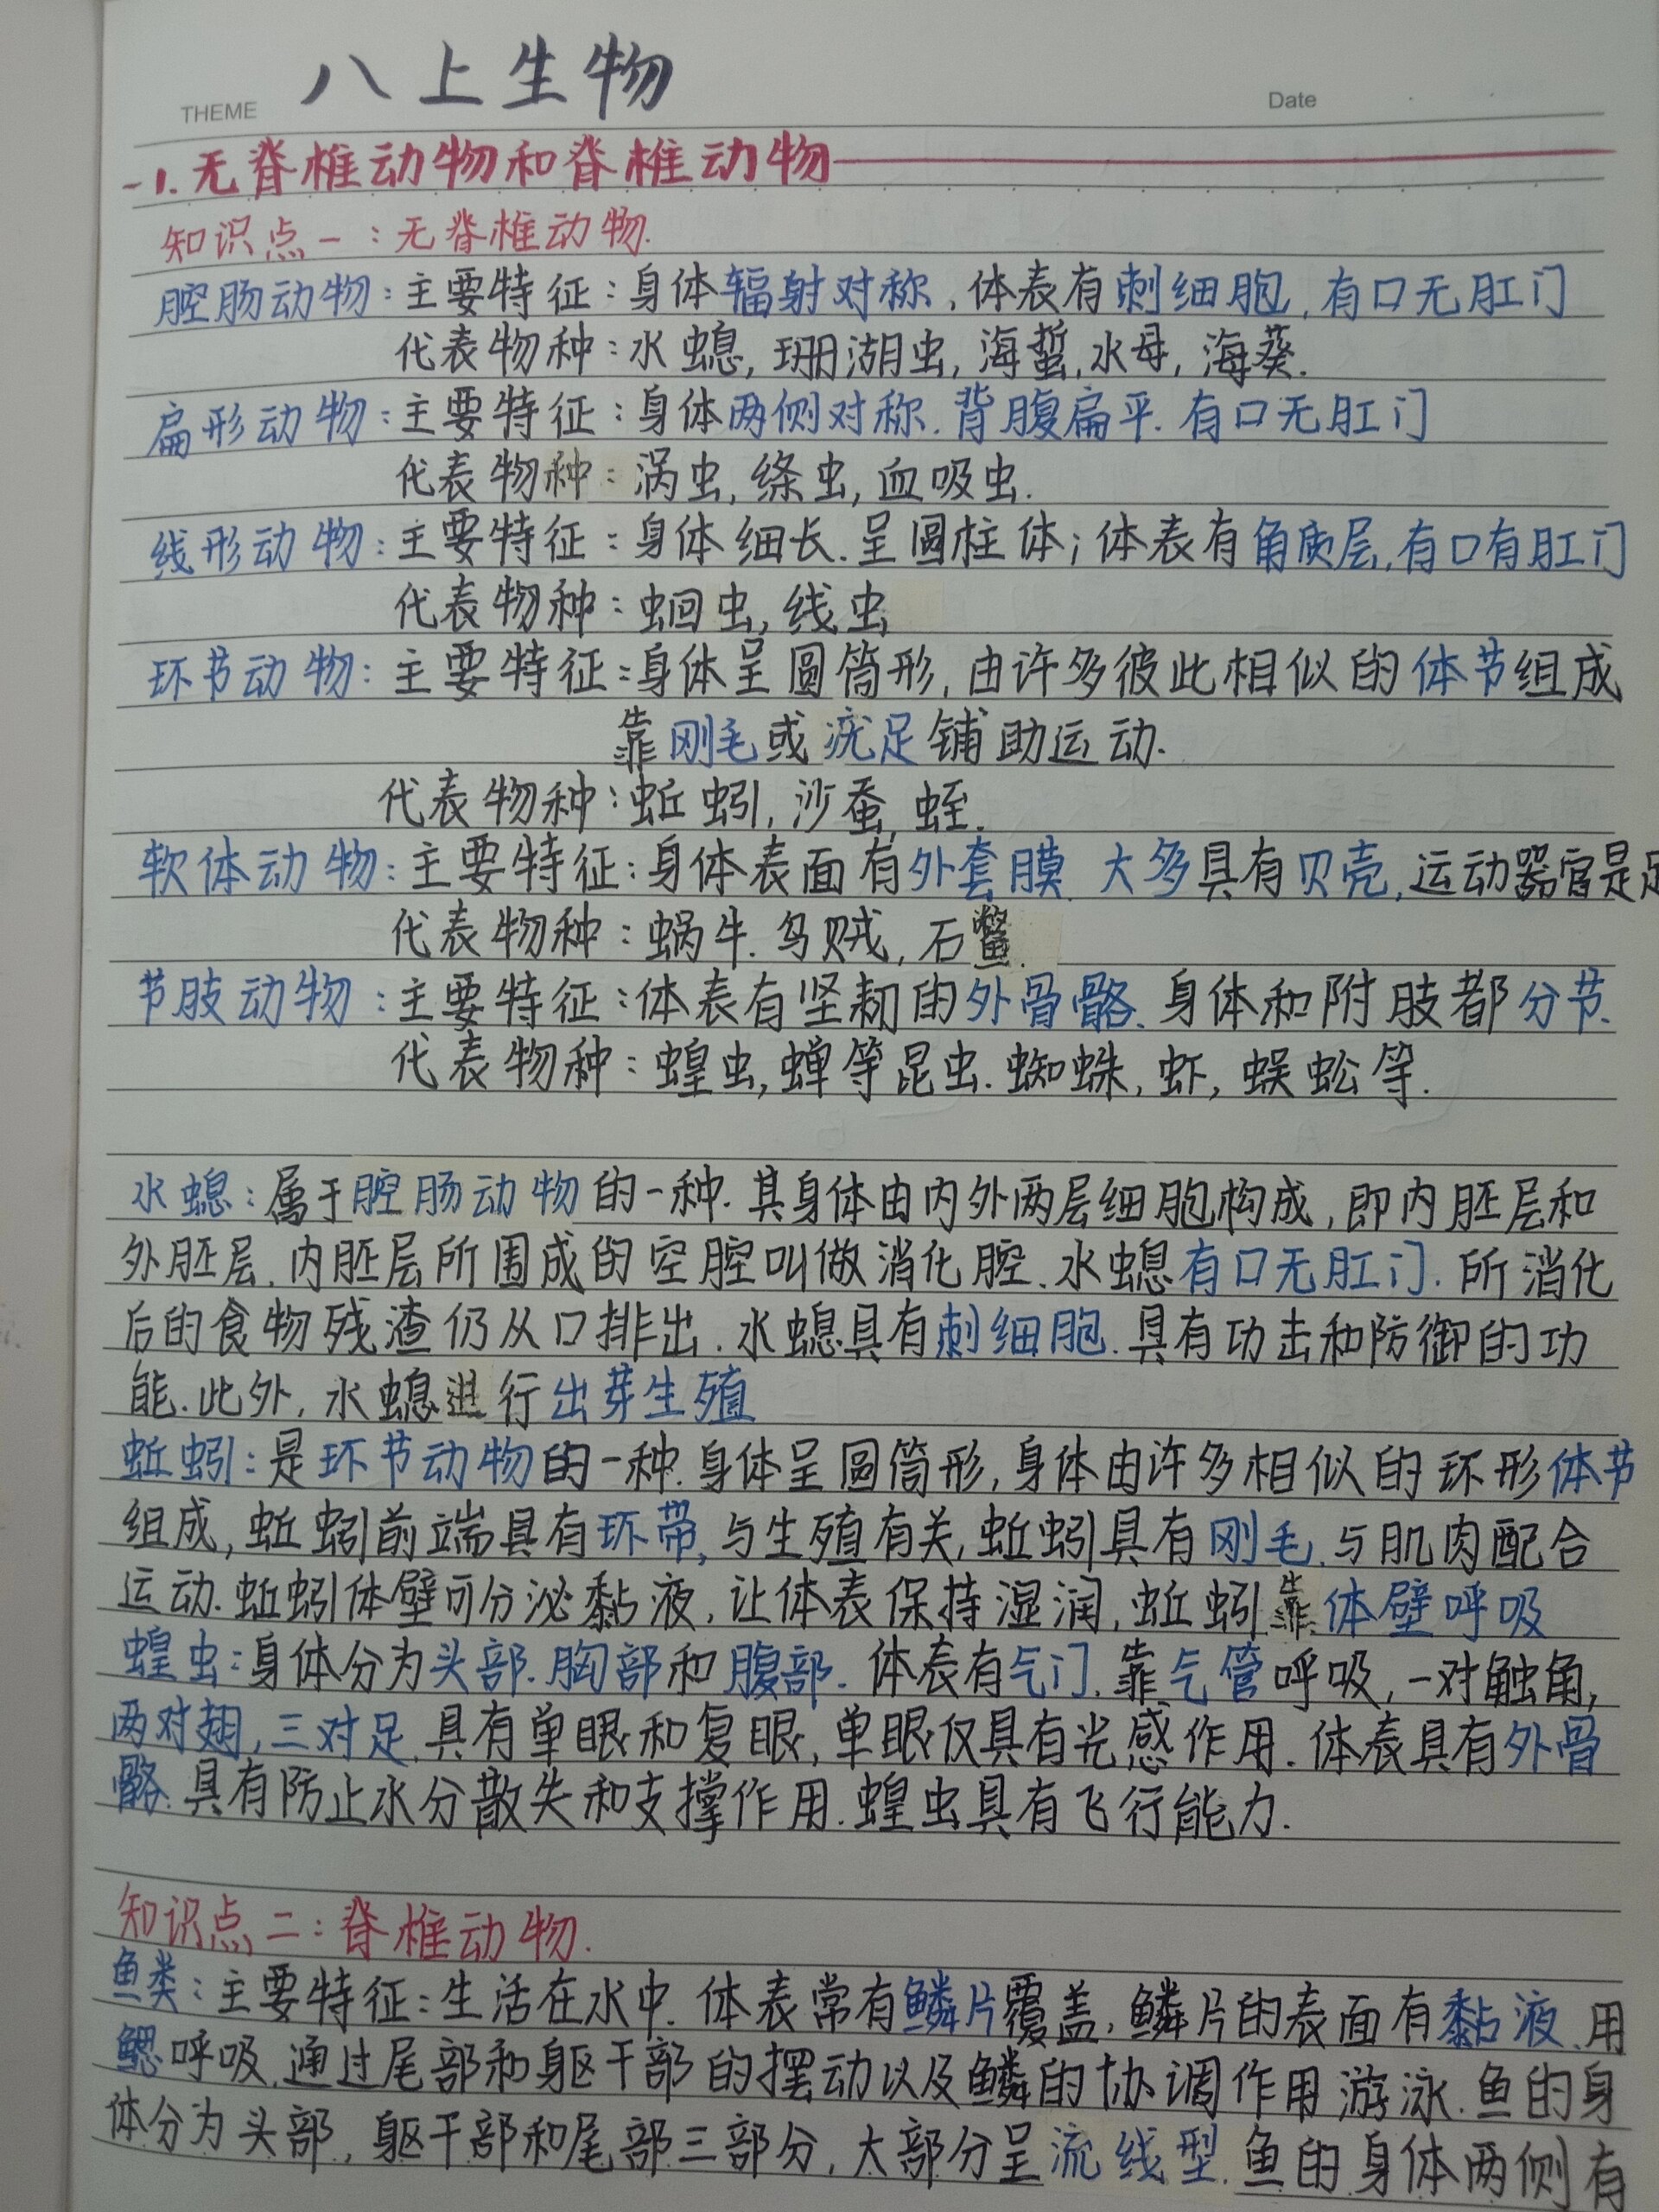 THEME 八上生物 Date
1.无脊椎动物和脊椎动物
知识点一：无脊椎动物.
腔肠动物：主要特征：身体辐射对称，体表有刺细胞，有口无肛门
代表物种：水螅，珊瑚虫，海蜇，水母，海葵.
扁形动物：主要特征：身体两侧对称.背腹扁平.有口无肛门
代表物种：涡虫，绦虫，血吸虫.
线形动物：主要特征：身体细长.呈圆柱体；体表有角质层，有口有肛门
代表物种：蛔虫，线虫
环节动物：主要特征：身体呈圆筒形，由许多彼此相似的体节组成
靠刚毛或疣足辅助运动.
代表物种：蚯蚓，沙蚕，蛭.
软体动物：主要特征：身体表面有外套膜.大多具有贝壳，运动器官是足
代表物种：蜗牛.乌贼，石鳖.
节肢动物：主要特征：体表有坚韧的外骨骼.身体和附肢都分节.
代表物种：蝗虫，蝉等昆虫.蜘蛛，虾，蜈蚣等.
水螅：属于腔肠动物的一种.其身体由内外两层细胞构成，即内胚层和
外胚层.内胚层所围成的空腔叫做消化腔.水螅有口无肛门.所消化
后的食物残渣仍从口排出.水螅具有刺细胞.具有功击和防御的功
能.此外，水螅进行出芽生殖
蚯蚓：是环节动物的一种.身体呈圆筒形，身体由许多相似的环形体节
组成，蚯蚓前端具有环带，与生殖有关，蚯蚓具有刚毛.与肌肉配合
运动.蚯蚓体壁可分泌黏液，让体表保持湿润，蚯蚓靠体壁呼吸
蝗虫：身体分为头部.胸部和腹部.体表有气门.靠气管呼吸，一对触角，
两对翅，三对足.具有单眼和复眼，单眼仅具有光感作用.体表具有外骨
骼.具有防止水分散失和支撑作用.蝗虫具有飞行能力.
知识点二：脊椎动物.
鱼类：主要特征：生活在水中.体表常有鳞片覆盖，鳞片的表面有黏液.用
鳃呼吸.通过尾部和躯干部的摆动以及鳞的协调作用游泳.鱼的身
体分为头部，躯干部和尾部三部分，大部分呈流线型.鱼的身体两侧有